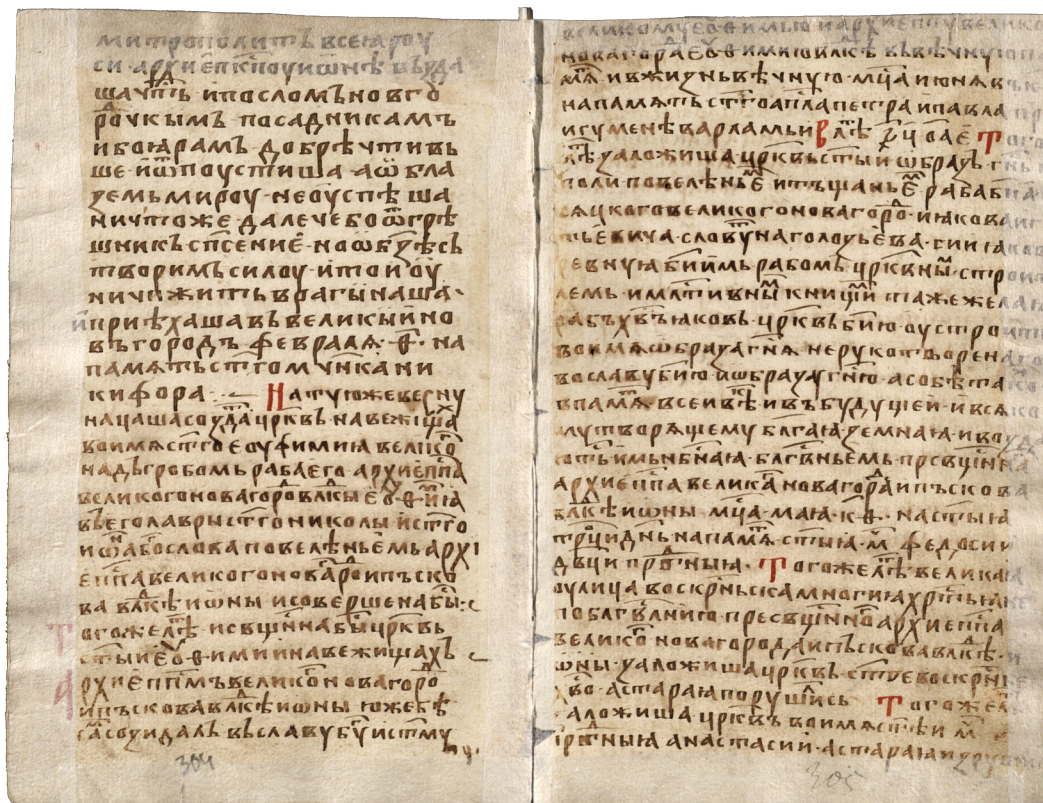 митрополитъ всеꙗ роу
си · архиепкпоу иѡнѣ въꙁда
шачⷭ҇ть · и посломъ новгоⷬ҇
роⷣчкымъ посадникамъ
и боꙗрамъ · добрѣ чтивъ
ше · иѿпоустиша · а ѡ бла
ꙁемь мироу · неоуспѣша
ничтоже · далече бо ѿ грѣ
шникъ сп҃сение · но ѡ бꙁѣ съ
творимъ силоу · и тои оу
ничижить врагы наша ·
и приѣхаша въ великыи но
въгородъ февралѧ · ѳ · на
памѧть ст҃го мч҃нка ни
кифора · На ту юже весну
начаша соꙁдⷣати црк҃въ на вежища
во имѧ ст҃го еоуфимиꙗ великоⷢ҇
надъ гробомь раба его архиепⷭ҇па
великого новагороⷣ влⷣкы еѵѳимиꙗ
въ его лавры ст҃го николы и ст҃го
иѡⷩ҇ бо҃слова повелѣньемь архи
епⷭ҇па великого новагороⷣ и пъско
ва влⷣкѣ иѡны и совершена быⷭ҇
Того же лѣⷮ и сщ҃нна быⷭ҇ црк҃въ
ст҃ыи еѵѳимии на вежищахъ
Архиепⷭ҇пмъ великоⷢ҇ новагороⷣ
и пъскова влⷣкѣ иѡны юже бѣ
саⷨ соꙁидалъ въ славу бж҃ию и ст҃му
великому еѵѳимью и архиепⷭ҇пу велико
новагораⷣ еѵѳимию влⷣкѣ въ вѣчную па
мⷮѧ и в жиꙁнь вѣчную · мⷭ҇ца июнѧ въ к
на памѧть ст҃го апⷭ҇ла петра и павла
игуменѣ варламьи В лѣⷮ ҂ꙅцоае Того
лѣⷮ ꙁаложиша црк҃въ ст҃ыи ѡбраꙁъ гнⷭ҇ь
поли повелѣньеⷨ и тъщаньеⷨ раба бж҃иꙗ
сѧцкого великого новагороⷣ · иꙗкова иг
тьевича · словуⷳ на голоꙁьева · сии ꙗ
ревную б҃иимь рабомь црк҃внꙑⷨ · строи
лемь · и млⷭ҇тивнꙑⷨ к нищии · та же жела
рабъ хв҃ъ ꙗковъ · црк҃въ б҃ию оустрои
во имѧ ѡбраꙁа гн҃ѧ нерукотворенаго
во славу б҃ию и ѡбраꙁу гн҃ю · а собѣ та
в памⷮѧ всеи в сеⷨ и въ будущеи · и всѧ
му творѧщему бл҃гаꙗ · ꙁемнаꙗ · и воꙁда
ють имъ нбⷭ҇наꙗ · блгⷭ҇вньемь · пресвщ҃нна
архиепⷭ҇па великаⷢ҇ новагораⷣ и пъскова
влⷣкѣ иѡны · мⷭ҇ца · маꙗ · к ѳ · на ст҃ыꙗ
трⷪ҇ци днь на памⷮѧ ст҃ыꙗ · мⷱ҇ · федосии
двⷣци прпⷣбныꙗ · Того же лѣⷮ великаꙗ
оулица воскрⷭ҇ньска многиꙗ хрⷭ҇тьꙗ
по блгⷭ҇внию пресвщ҃нноⷢ҇ архиепⷭ҇па
великоⷢ҇ новагорода и пъскова влⷣкѣ ·
иѡны · ꙁаложиша црк҃въ · ст҃ое воскрⷭ҇ние
двⷪ҇ · а стараꙗ порушись Того же лѣ
ꙁаложиша црк҃въ во имѧ ст҃ѣи мⷱ҇
прпⷣбныꙗ анастасии · а стараꙗ иꙁру
304
305